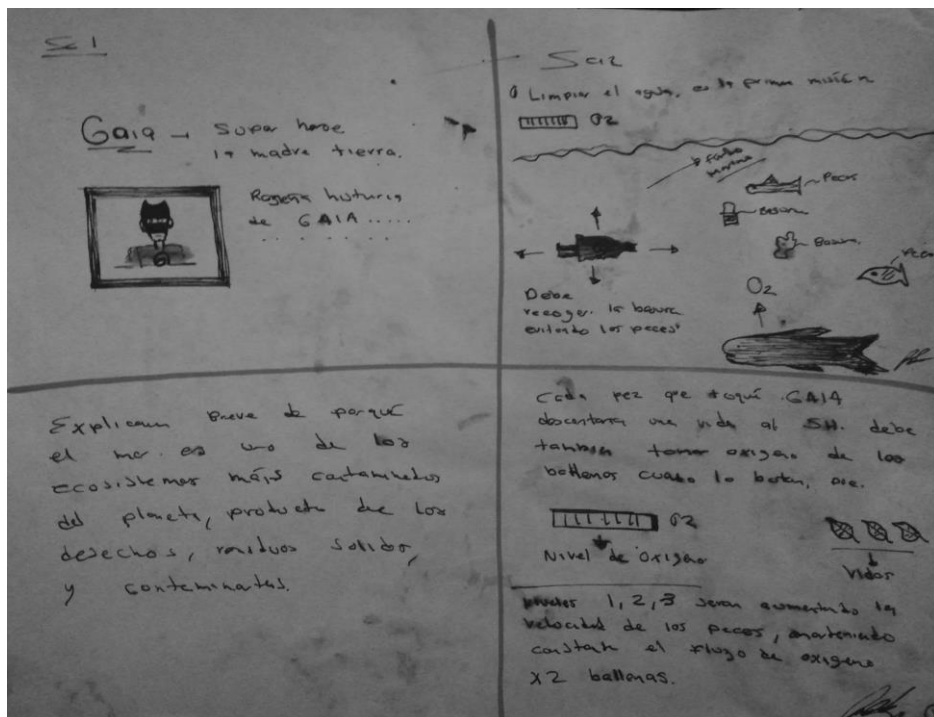 Sc 1
Gaia → Super heroe
la madre tierra.
historia
de GAIA .....
Explicam Breve de porqué
el mar es uno de los
ecosistemas máis contaminados
del planeta, producto de los
desechos, residuos solidos,
y contaminantes.
Limpiar el agua, es la primera misión
O2
fondo
marino
Peces
Basura
Basura
O2
Debe
recoger la basura
evitando los peces
Cada pez qe toqué GAIA
descontara una vida al SH. debe
tambien tomar oxigeno de las
ballenas cuando lo botan,
O2
Nivel de Oxigeno
Vidas
niveles 1, 2, 3 seran aumentado la
velocidad de los peces, manteniendo
constante el flujo de oxigeno
x2 ballenas.